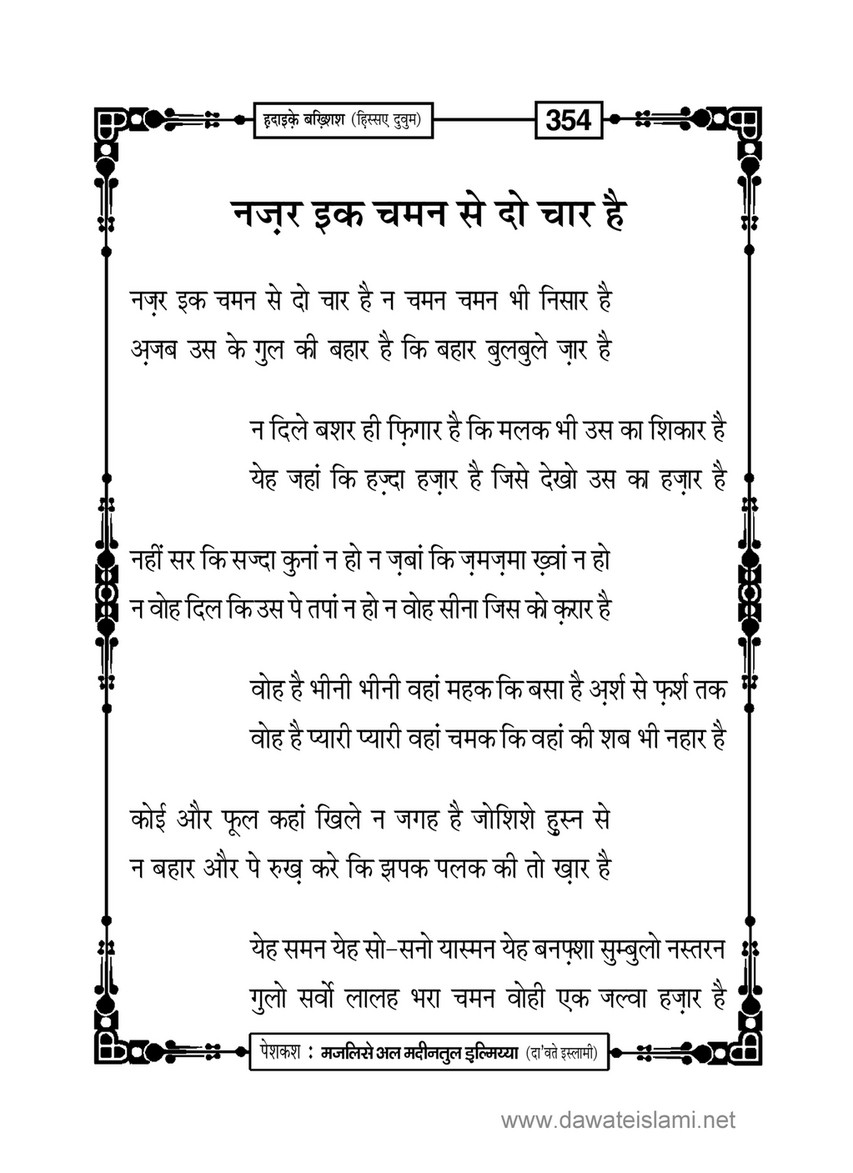 ह़दाइके़ बख़्शिश (ह़िस्सए दुवुम)
354
नज़र इक चमन से दो चार है
नज़र इक चमन से दो चार है न चमन चमन भी निसार है
अ़जब उस के गुल की बहार है कि बहार बुलबुले ज़ार है
न दिले बशर ही फ़िगार है कि मलक भी उस का शिकार है
येह जहां कि हज़्दा हज़ार है जिसे देखो उस का हज़ार है
नहीं सर कि सज्दा कुनां न हो न ज़बां कि ज़मज़मा ख़्वां न हो
न वोह दिल कि उस पे तपां न हो न वोह सीना जिस को क़रार है
वोह है भीनी भीनी वहां महक कि बसा है अ़र्श से फ़र्श तक
वोह है प्यारी प्यारी वहां चमक कि वहां की शब भी नहार है
कोई और फूल कहां खिले न जगह है जोशिशे ह़ुस्न से
न बहार और पे रुख़ करे कि झपक पलक की तो ख़ार है
येह समन येह सो-सनो यास्मन येह बनफ़्शा सुम्बुलो नस्तरन
गुलो सर्वो लालह भरा चमन वोही एक जल्वा हज़ार है
पेशकश : मजलिसे अल मदीनतुल इ़ल्मिय्या (दा'वते इस्लामी)
www.dawateislami.net